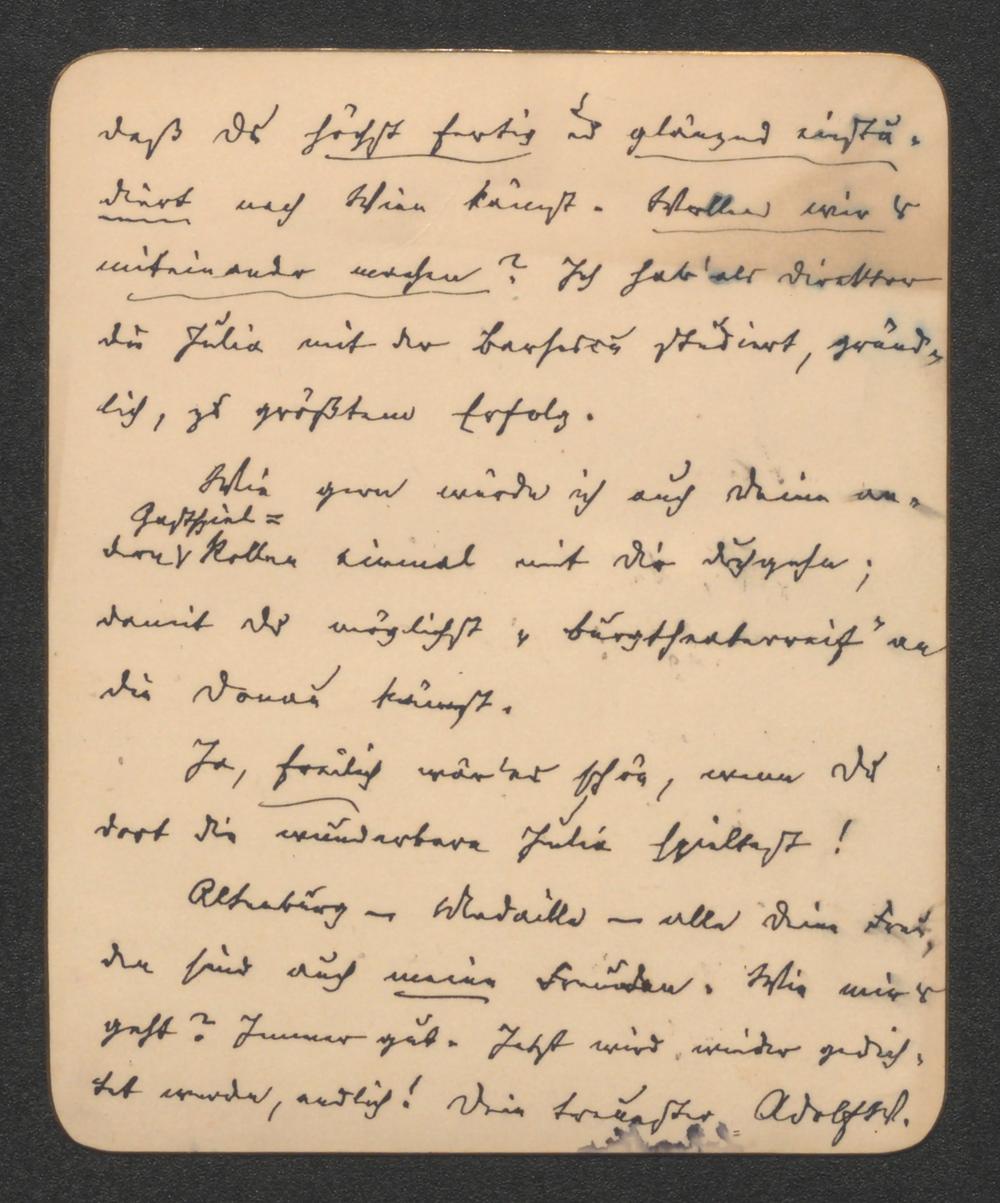 daß Du höchst fertig u glänzend einstu-
diert nach Wien kämst. Wollen wir's
miteinander machen? Ich hab' als Direktor
die Julia mit der Barsescu studiert, gründ-
lich, zu größtem Erfolg.
Wie gern würde ich auch deine an-
Gastspiel=
dern Rollen einmal mit Dir durchgehn;
damit Du möglichst „burgtheaterreif" an
die Donau kämst.
Ja, freilich wär' es schön, wenn Du
dort die wunderbare Julia spieltest!
Altenburg – Medaille – alle deine Freu-
den sind auch meine Freuden. Wie mir's
geht? Immer gut. Jetzt wird wieder gedich-
tet werden, endlich! Dein treuester AdolfW.